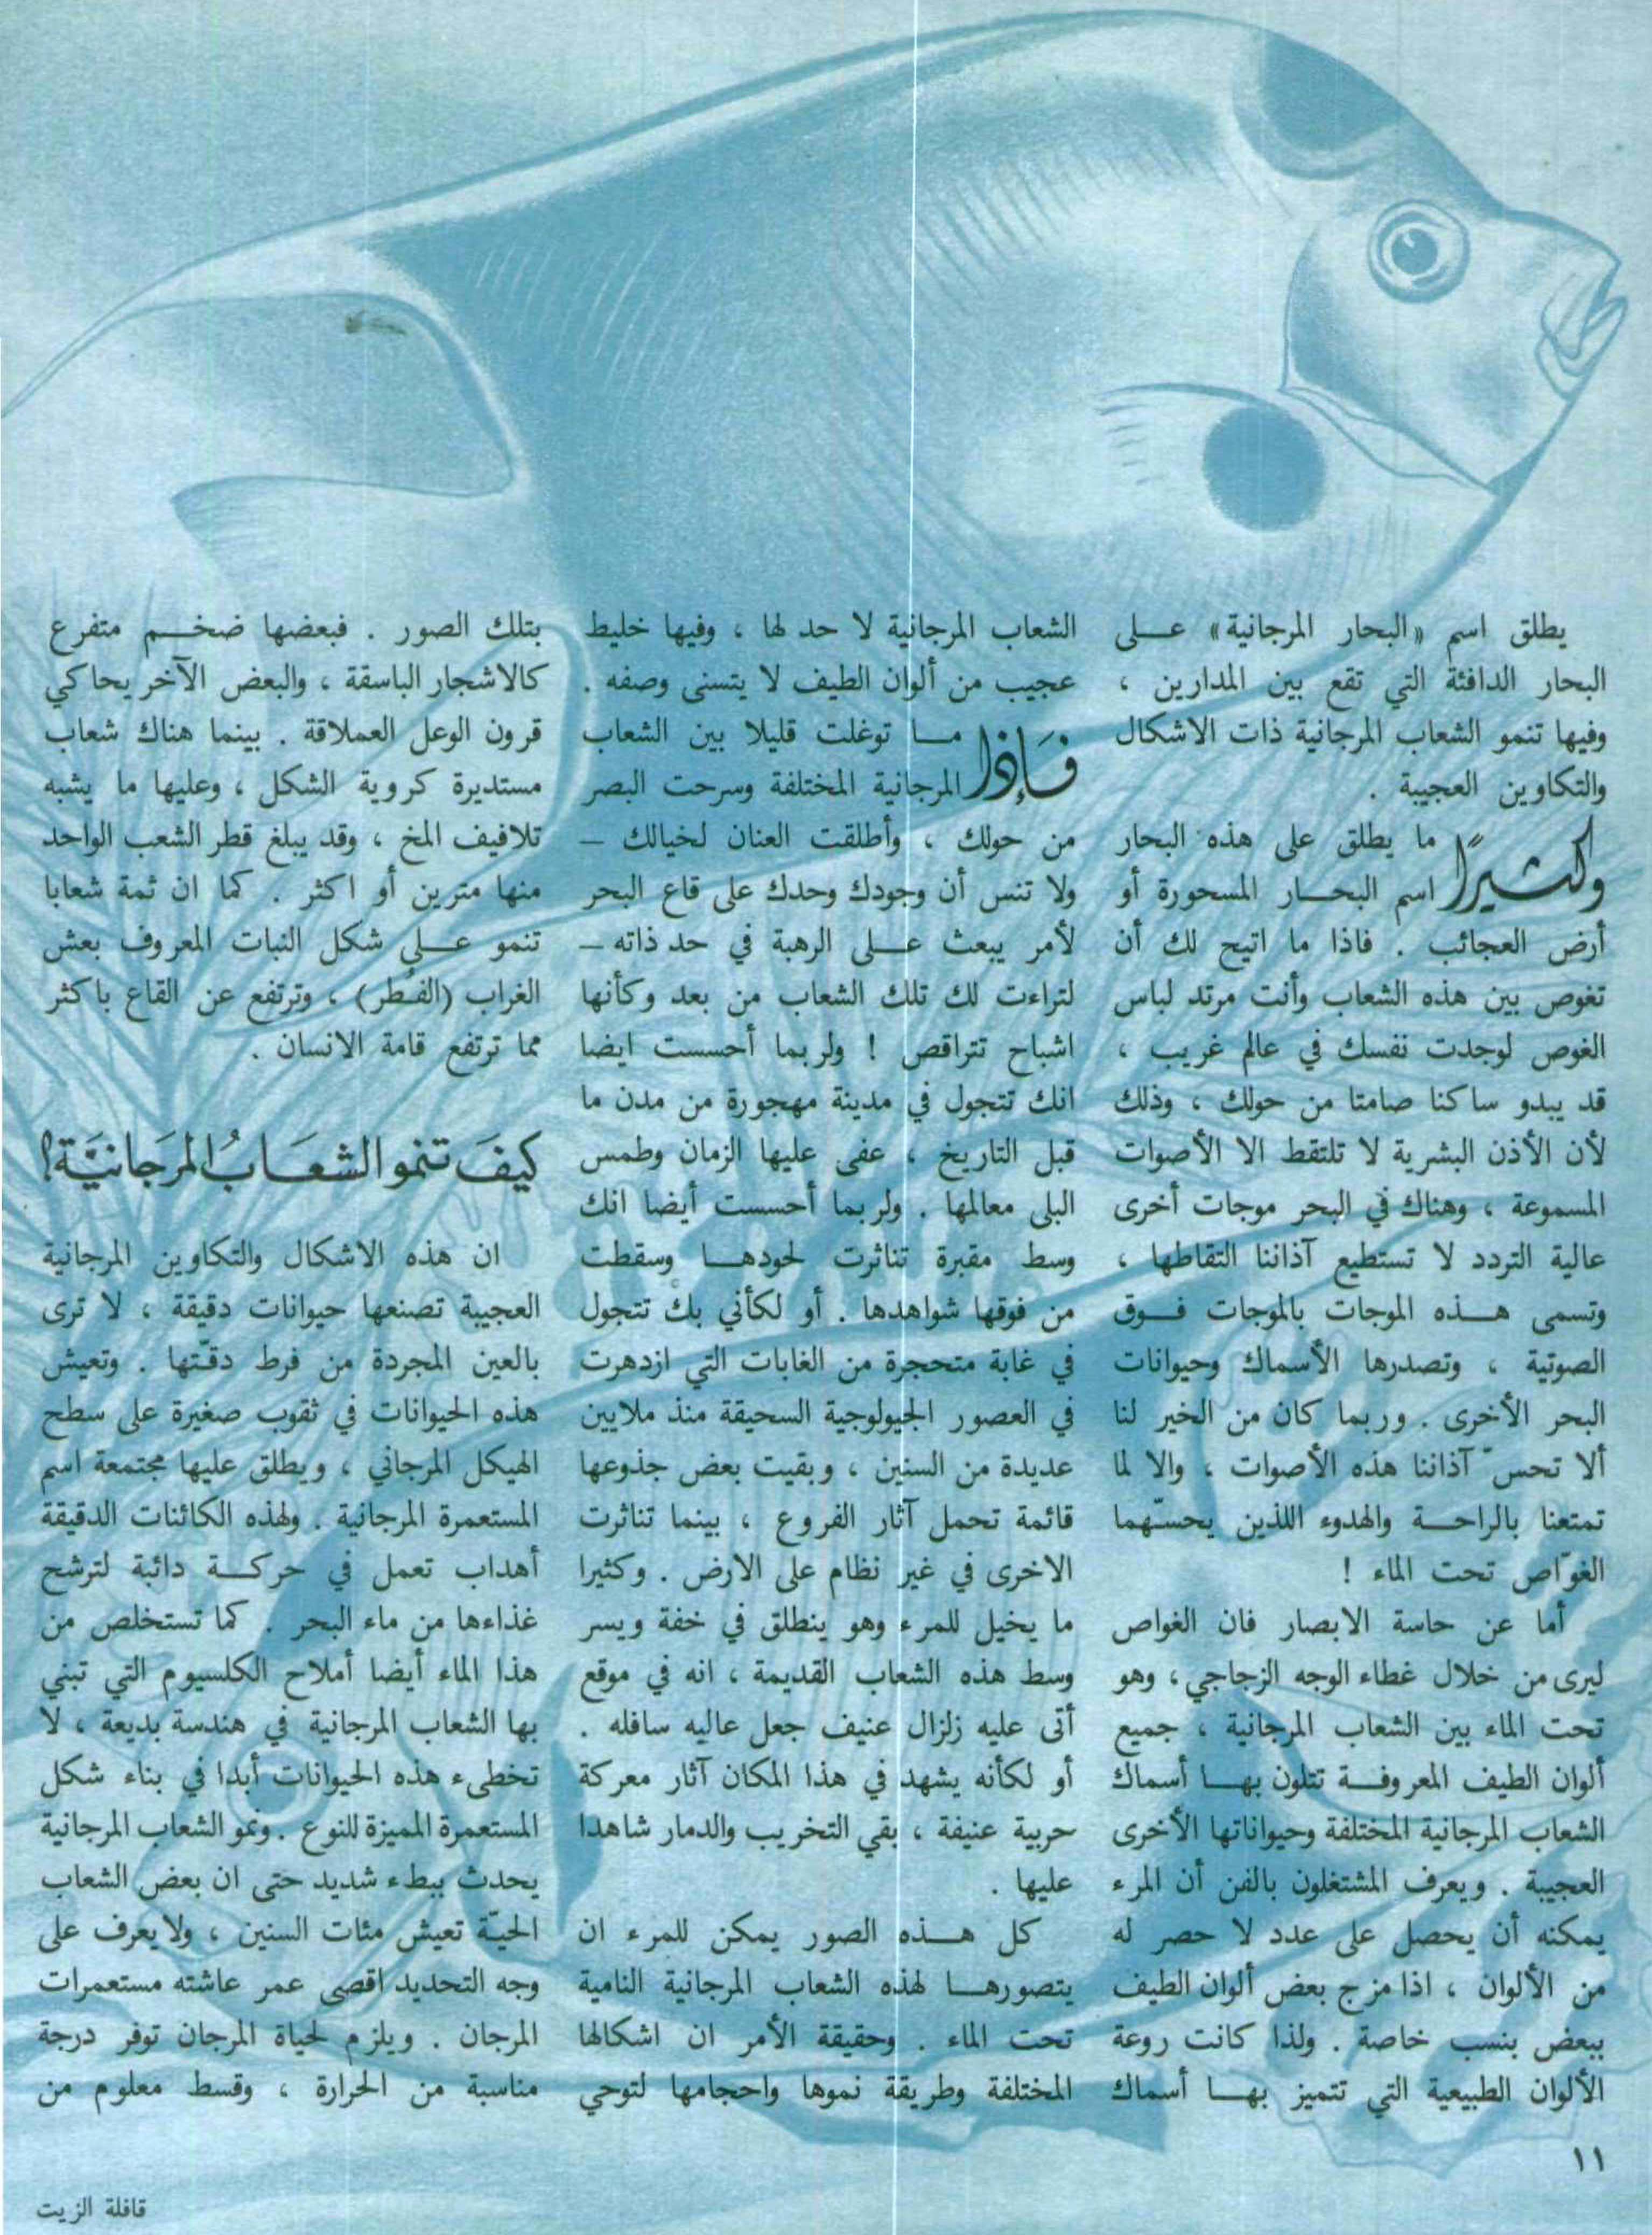 يطلق اسم «البحار المرجانية» على
البحار الدافئة التي تقع بين المدارين ،
وفيها تنمو الشعاب المرجانية ذات الاشكال
والتكاوين العجيبة .
وكثيرًا ما يطلق على هذه البحار
اسم البحار المسحورة أو
أرض العجائب . فاذا ما اتيح لك أن
تغوص بين هذه الشعاب وأنت مرتد لباس
الغوص لوجدت نفسك في عالم غريب ،
قد يبدو ساكنا صامتا من حولك ، وذلك
لأن الأذن البشرية لا تلتقط الا الأصوات
المسموعة ، وهناك في البحر موجات أخرى
عالية التردد لا تستطيع آذاننا التقاطها ،
وتسمى هذه الموجات بالموجات فوق
الصوتية ، وتصدرها الأسماك وحيوانات
البحر الأخرى . وربما كان من الخير لنا
ألا تحسّ آذاننا هذه الأصوات ، والا لما
تمتعنا بالراحة والهدوء اللذين يحسّهما
الغوّاص تحت الماء !
أما عن حاسة الابصار فان الغواص
ليرى من خلال غطاء الوجه الزجاجي ، وهو
تحت الماء بين الشعاب المرجانية ، جميع
ألوان الطيف المعروفة تتلون بها أسماك
الشعاب المرجانية المختلفة وحيواناتها الأخرى
العجيبة . ويعرف المشتغلون بالفن أن المرء
يمكنه أن يحصل على عدد لا حصر له
من الألوان ، اذا مزج بعض ألوان الطيف
ببعض بنسب خاصة . ولذا كانت روعة
الألوان الطبيعية التي تتميز بها أسماك
الشعاب المرجانية لا حد لها ، وفيها خليط
عجيب من ألوان الطيف لا يتسنى وصفه .
فَإذا ما توغلت قليلا بين الشعاب
المرجانية المختلفة وسرحت البصر
من حولك ، وأطلقت العنان لخيالك –
ولا تنس أن وجودك وحدك على قاع البحر
لأمر يبعث على الرهبة في حد ذاته –
لتراءت لك تلك الشعاب من بعد وكأنها
اشباح تتراقص ! ولربما أحسست ايضا
انك تتجول في مدينة مهجورة من مدن ما
قبل التاريخ ، عفى عليها الزمان وطمس
البلى معالمها . ولربما أحسست أيضا انك
وسط مقبرة تناثرت لحودها وسقطت
من فوقها شواهدها . أو لكأني بك تتجول
في غابة متحجرة من الغابات التي ازدهرت
في العصور الجيولوجية السحيقة منذ ملايين
عديدة من السنين ، وبقيت بعض جذوعها
قائمة تحمل آثار الفروع ، بينما تناثرت
الاخرى في غير نظام على الارض . وكثيرا
ما يخيل للمرء وهو ينطلق في خفة ويسر
وسط هذه الشعاب القديمة ، انه في موقع
أتى عليه زلزال عنيف جعل عاليه سافله .
أو لكأنه يشهد في هذا المكان آثار معركة
حربية عنيفة ، بقي التخريب والدمار شاهدا
عليها .
كل هذه الصور يمكن للمرء ان
يتصورها لهذه الشعاب المرجانية النامية
تحت الماء . وحقيقة الأمر ان اشكالها
المختلفة وطريقة نموها واحجامها لتوحي
بتلك الصور . فبعضها ضخم متفرع
كالاشجار الباسقة ، والبعض الآخر يحاكي
قرون الوعل العملاقة . بينما هناك شعاب
مستديرة كروية الشكل ، وعليها ما يشبه
تلافيف المخ ، وقد يبلغ قطر الشعب الواحد
منها مترين أو اكثر . كما ان ثمة شعابا
تنمو على شكل النبات المعروف بعش
الغراب (الفُطر) ، وترتفع عن القاع باكثر
مما ترتفع قامة الانسان .
كيفَ تنمو الشعَابُ المرَجَانيَّة؟
ان هذه الاشكال والتكاوين المرجانية
العجيبة تصنعها حيوانات دقيقة ، لا ترى
بالعين المجردة من فرط دقّتها . وتعيش
هذه الحيوانات في ثقوب صغيرة على سطح
الهيكل المرجاني ، ويطلق عليها مجتمعة اسم
المستعمرة المرجانية . ولهذه الكائنات الدقيقة
أهداب تعمل في حركة دائبة لترشح
غذاءها من ماء البحر . كما تستخلص من
هذا الماء أيضا أملاح الكلسيوم التي تبني
بها الشعاب المرجانية في هندسة بديعة ، لا
تخطىء هذه الحيوانات أبدا في بناء شكل
المستعمرة المميزة للنوع . ونمو الشعاب المرجانية
يحدث ببطء شديد حتى ان بعض الشعاب
الحيّة تعيش مئات السنين ، ولا يعرف على
وجه التحديد اقصى عمر عاشته مستعمرات
المرجان . ويلزم لحياة المرجان توفر درجة
مناسبة من الحرارة ، وقسط معلوم من
١١
قافلة الزيت